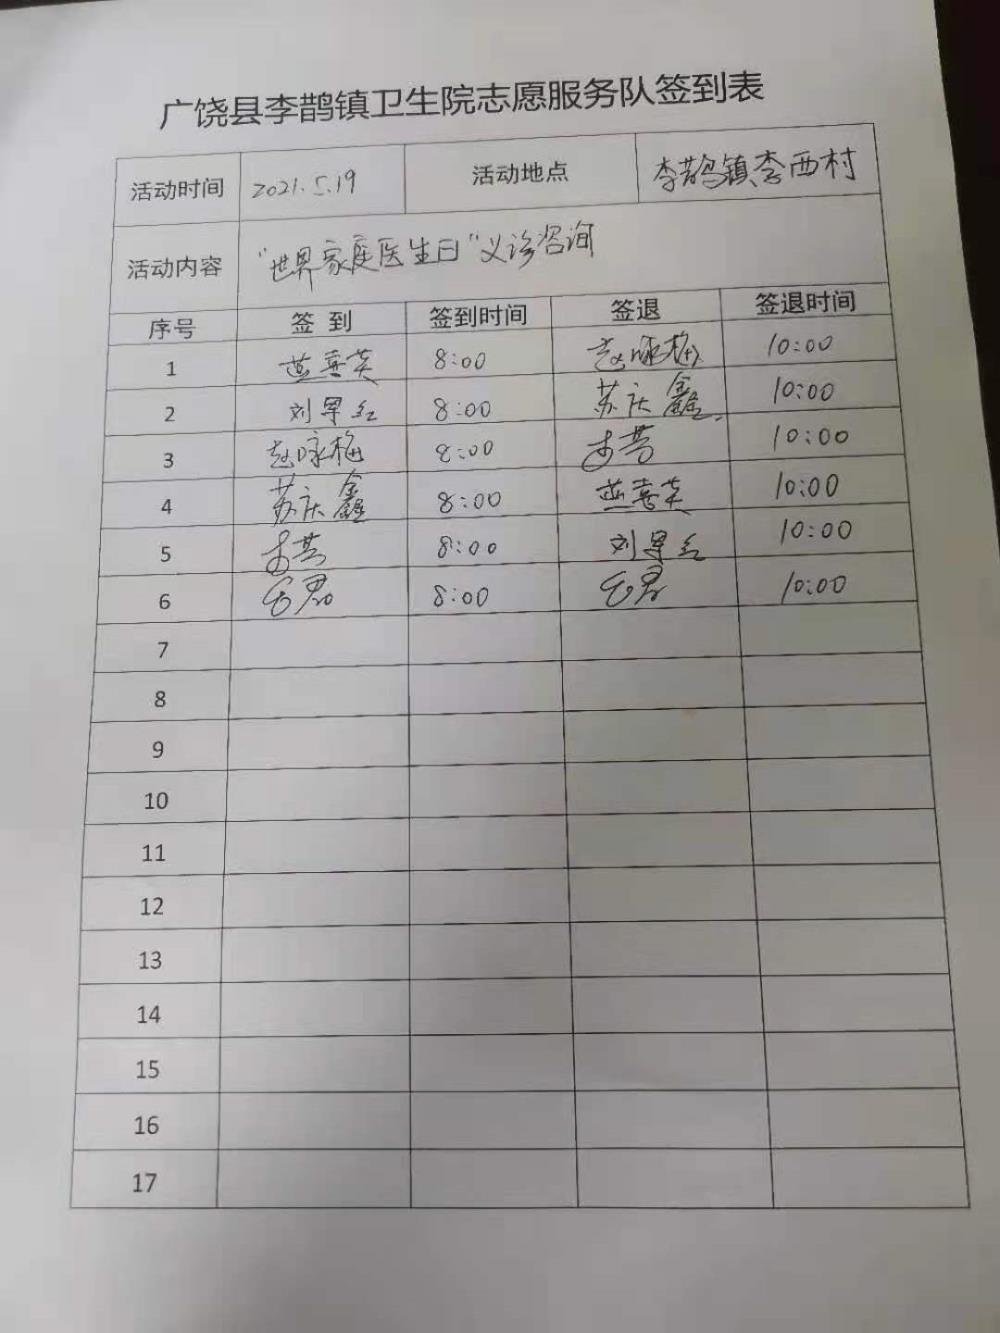 广饶县李鹊镇卫生院志愿服务队签到表
活动时间 2021.5.19 活动地点 李鹊镇李西村
活动内容 "世界家庭医生日"义诊咨询
序号 签到 签到时间 签退 签退时间
1 燕喜英 8:00 赵咏梅 10:00
2 刘旱红 8:00 苏庆鑫 10:00
3 赵咏梅 8:00 10:00
4 苏庆鑫 8:00 燕喜英 10:00
5 8:00 刘旱红 10:00
6 8:00 10:00
7
8
9
10
11
12
13
14
15
16
17